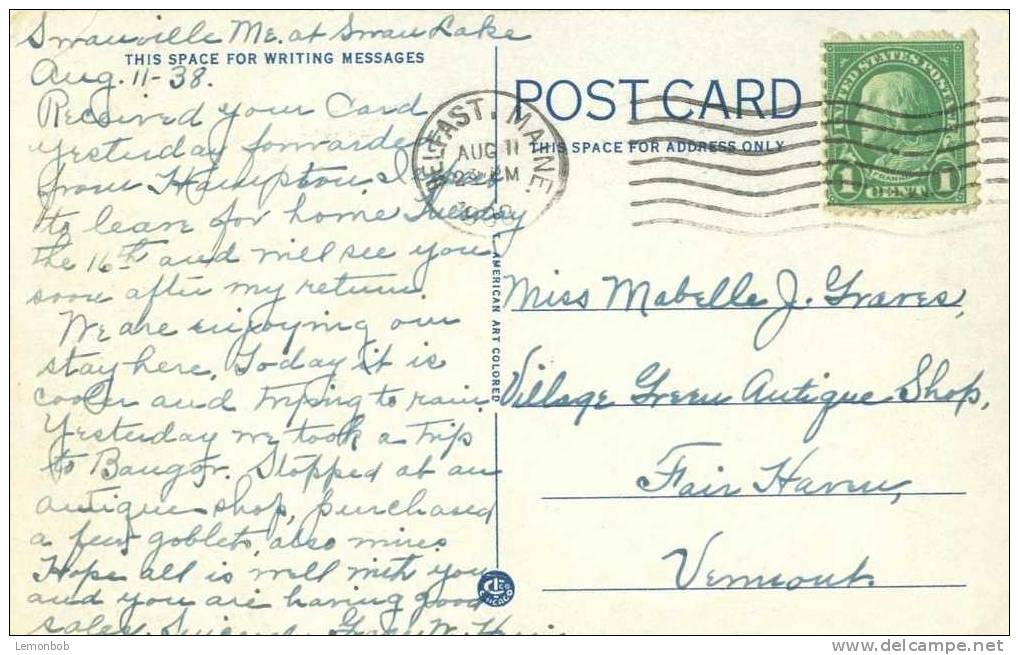 Swanville Me. at Swan Lake
THIS SPACE FOR WRITING MESSAGES
Aug. 11-38.
Received your Card
yesterday forwarded
from Hampton. I
to leave for home Tuesday
the 16th and will see you
soon after my return.
We are enjoying our
stay here. Today it is
cooler and trying to rain.
Yesterday we took a trip
to Bangor. Stopped at an
antique shop, purchased
a few goblets, also
Hope all is well with you
and you are having good
sales.
C.T. AMERICAN ART COLORED
POST CARD
THIS SPACE FOR ADDRESS ONLY
BELFAST, MAINE
AUG 11
PM
UNITED STATES POSTAGE
FRANKLIN
1 CENT 1
Miss Mabelle J. Graves,
Village Green Antique Shop,
Fair Haven,
Vermont.
CHICAGO
Lemonbob
www.delcampe.net